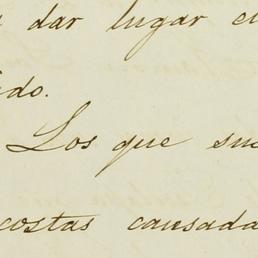 dar lugar
ido.
Los que su
costas causada